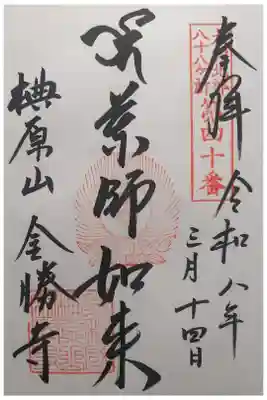 奉拝 令和八年
三月十四日
八十八ヶ所第四十番
薬師如来
椣原山 金勝寺